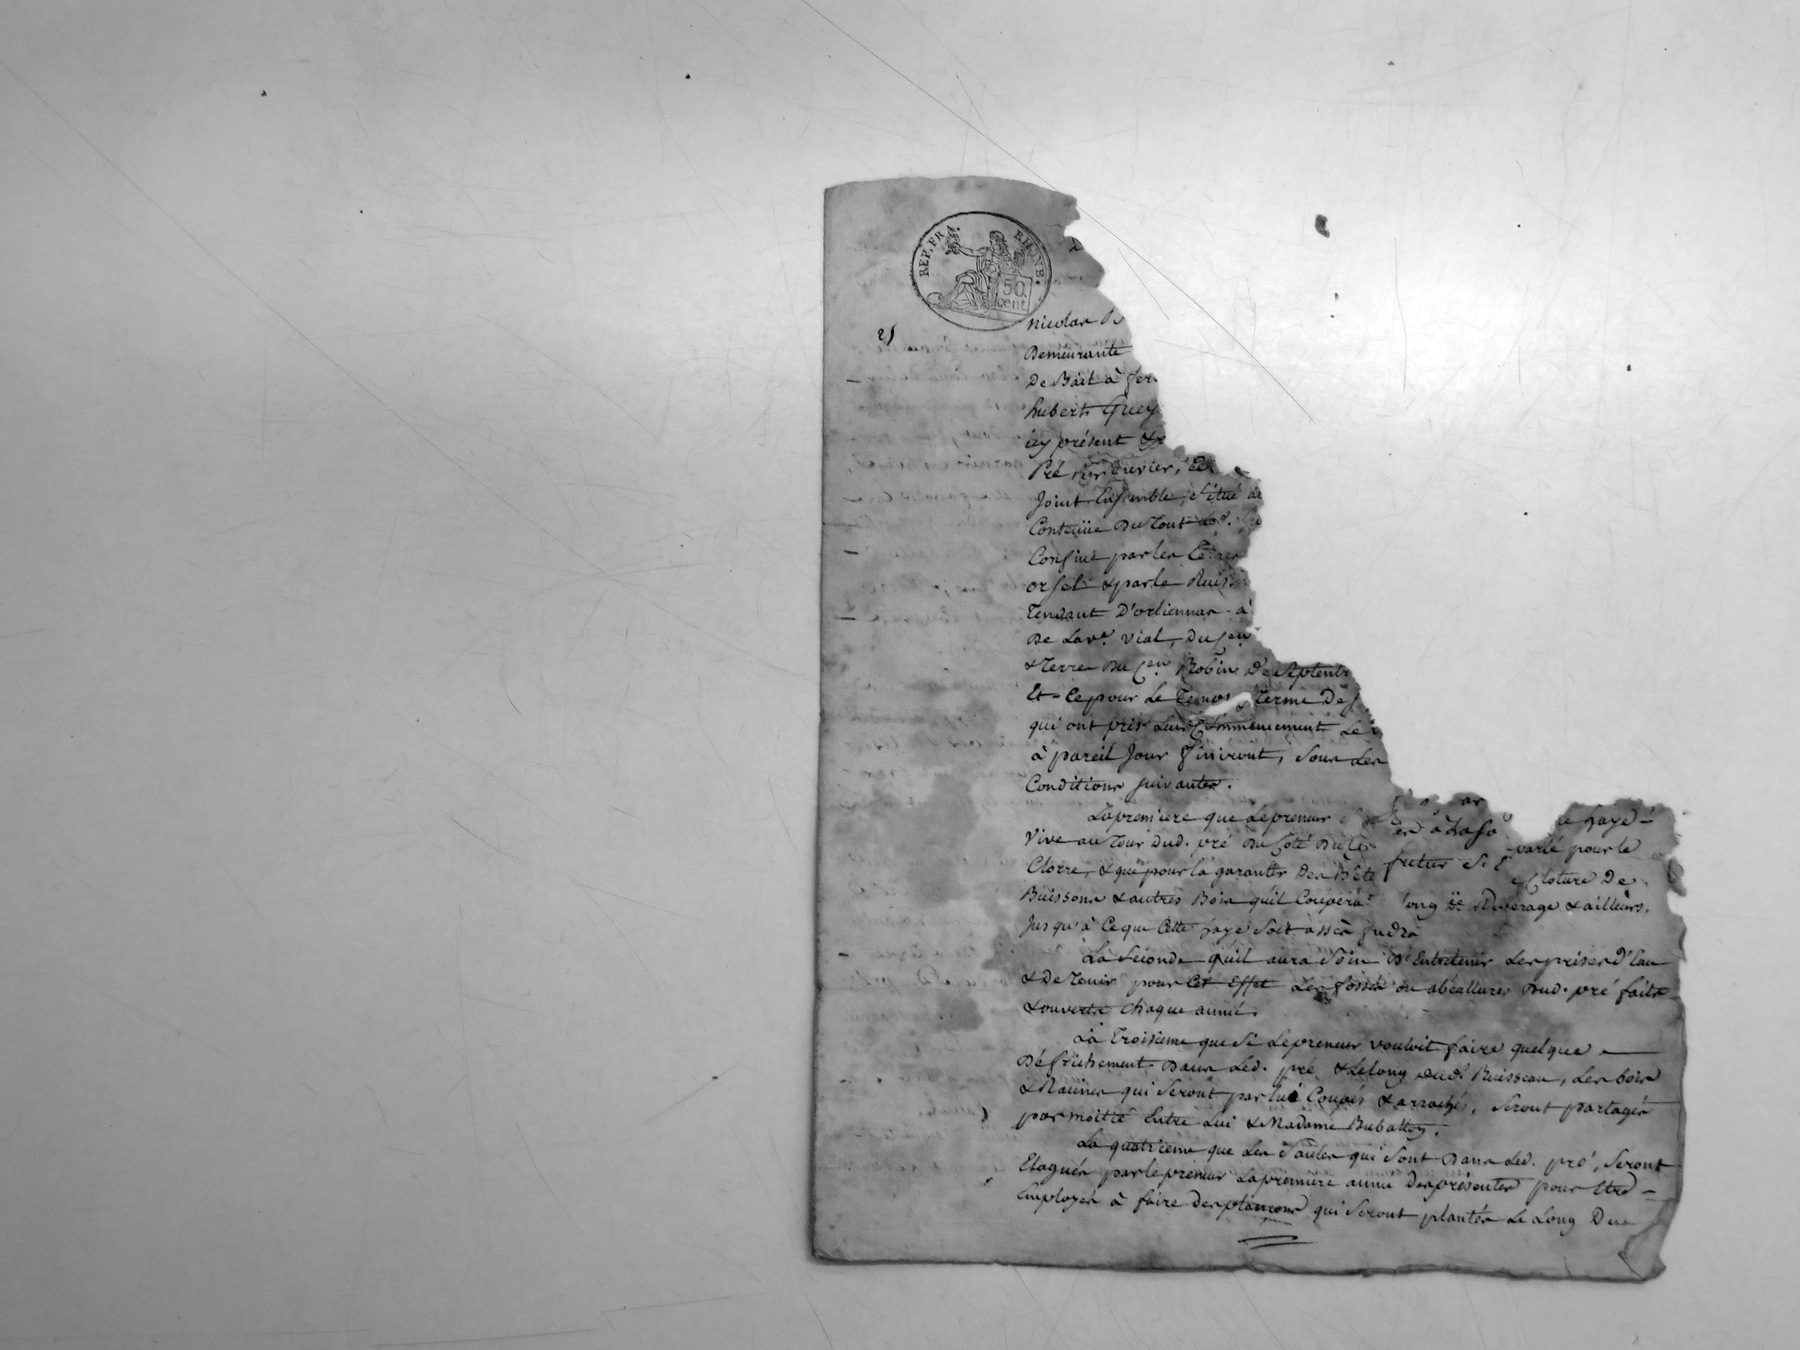 REP. FRA. RHONE.
50
cent
2
Nicolas B
Demeurante
De Bail à fer
hubert Guey
icy présent &
Pré sur rivier, Et
Joint Ensemble, situé de
Contenüe Du Tout
Confine par les Terres
orsel & par le Ruis
Tendant D'orliennas à
De La ve. Vial, Du Cen
& Terres Du Cen Robin De Septembr
Et Ce pour Le Tems & Terme De
qui ont pris Leur Commencement Le
à pareil Jour finiront, sous Les
Conditions suivantes.
La premiere que Le preneur à La haye
Vive au Tour Dud. pré Du Coté par le pour le
Clorre, & que pour la garantir Des Bete futur Cloture De
Buissons & autres Bois qu'il Coupera long Rivage & ailleurs,
Jusqu'à Ce que Cette haye soit assés
La Seconde qu'il aura Soin D'Entretenir Les prises D'Eau
& De Tenir pour Cet Effet Les fossés ou abéallures Dud. pré faits
& ouverts Chaque année.
La Troisieme que Si Le preneur vouloit faire quelque
Défrichement Dans Led. pré & Le long dud. Ruisseau, Les bois
& Racines qui Seront par lui Coupés & arrachés, Seront partagés
par moitié Entre Lui & Madame Bubatton.
La quatrieme que Les Saules qui Sont Dans Led. pré, Seront
Elagués par le preneur La premiere année Des présentes pour Etre
Employés à faire Des plançons qui Seront plantés Le Long Du